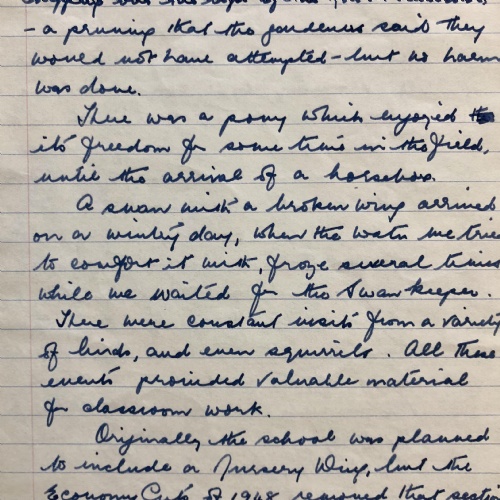 - a pruning that the gardeners said they
would not have attempted - but no harm
was done.
There was a pony which enjoyed
its freedom for some time in the field,
until the arrival of a horsebox.
A swan with a broken wing arrived
on a wintry day, when the water we tried
to comfort it with, froze several times
while we waited for the Swan keeper.
There were constant visits from a variety
of birds, and even squirrels. All these
events provided valuable material
for classroom work.
Originally the school was planned
to include a Nursery Wing, but the
Economy Cuts of 1948 removed that